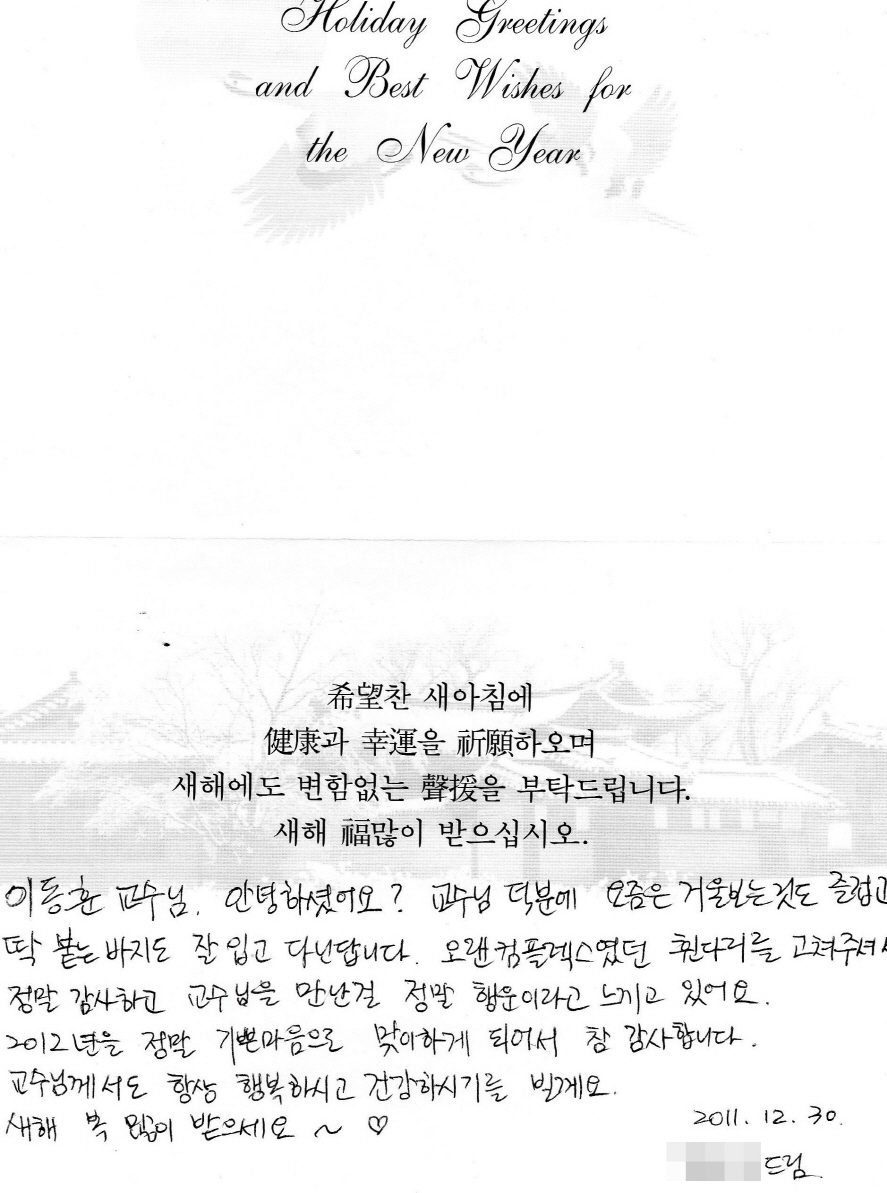 Holiday Greetings
and Best Wishes for
the New Year
希望찬 새아침에
健康과 幸運을 祈願하오며
새해에도 변함없는 聲援을 부탁드립니다.
새해 福많이 받으십시오.
이동훈 교수님. 안녕하셨어요? 교수님 덕분에 요즘은 거울보는것도 즐겁고
딱 붙는 바지도 잘 입고 다닌답니다. 오랜컴플렉스였던 휜다리를 고쳐주셔서
정말 감사하고 교수님을 만난걸 정말 행운이라고 느끼고 있어요.
2012년을 정말 기쁜마음으로 맞이하게 되어서 참 감사합니다.
교수님께서도 항상 행복하시고 건강하시기를 빌게요.
새해 복 많이 받으세요 ~ ♡
2011. 12. 30.
드림